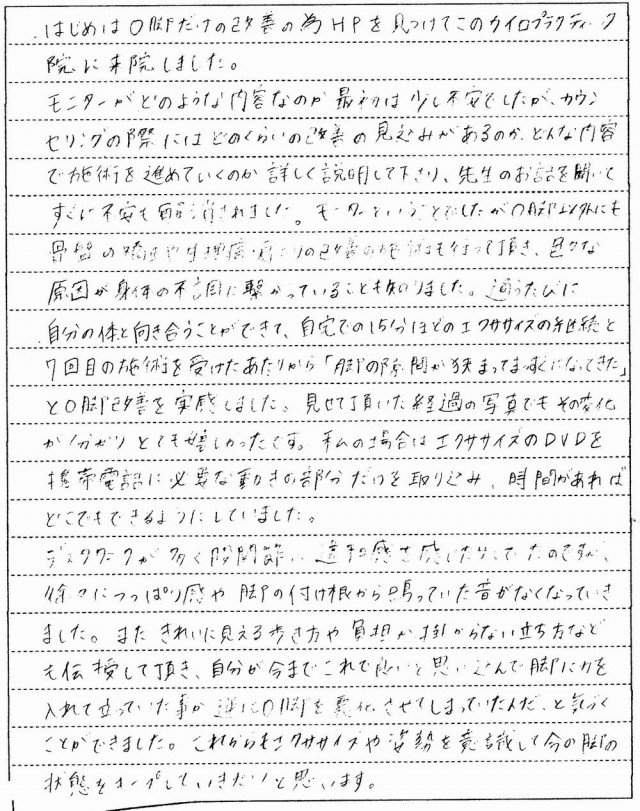 はじめはO脚だけの改善の為HPを見つけてこのカイロプラクティック
院に来院しました。
モニターがどのような内容なのか最初は少し不安でしたが、カウン
セリングの際にはどのくらいの改善の見込みがあるのか、どんな内容
で施術を進めていくのか詳しく説明して下さり、先生のお話を聞いて
すぐに不安も解消されました。モニターということでしたがO脚以外にも
骨盤の矯正や生理痛・肩こりの改善の施術も行って頂き、色々な
原因が身体の不調に繋がっていることも知りました。通うたびに
自分の体と向き合うことができて、自宅での15分ほどのエクササイズの継続と
7回目の施術を受けたあたりから「脚の隙間が狭まってまっすぐになってきた」
とO脚改善を実感しました。見せて頂いた経過の写真でもその変化
が分かりとても嬉しかったです。私の場合はエクササイズのDVDを
携帯電話に必要な動きの部分だけを取り込み、時間があれば
どこでもできるようにしていました。
デスクワークが多く股関節に違和感を感じたりしてたのですが、
徐々につっぱり感や脚の付け根から鳴っていた音がなくなっていき
ました。またきれいに見える歩き方や負担が掛からない立ち方など
も伝授して頂き、自分が今までこれで良いと思い込んで脚に力を
入れて立っていた事が逆にO脚を悪化させてしまっていたんだ、と気づく
ことができました。これからもエクササイズや姿勢を意識して今の脚の
状態をキープしていきたいと思います。